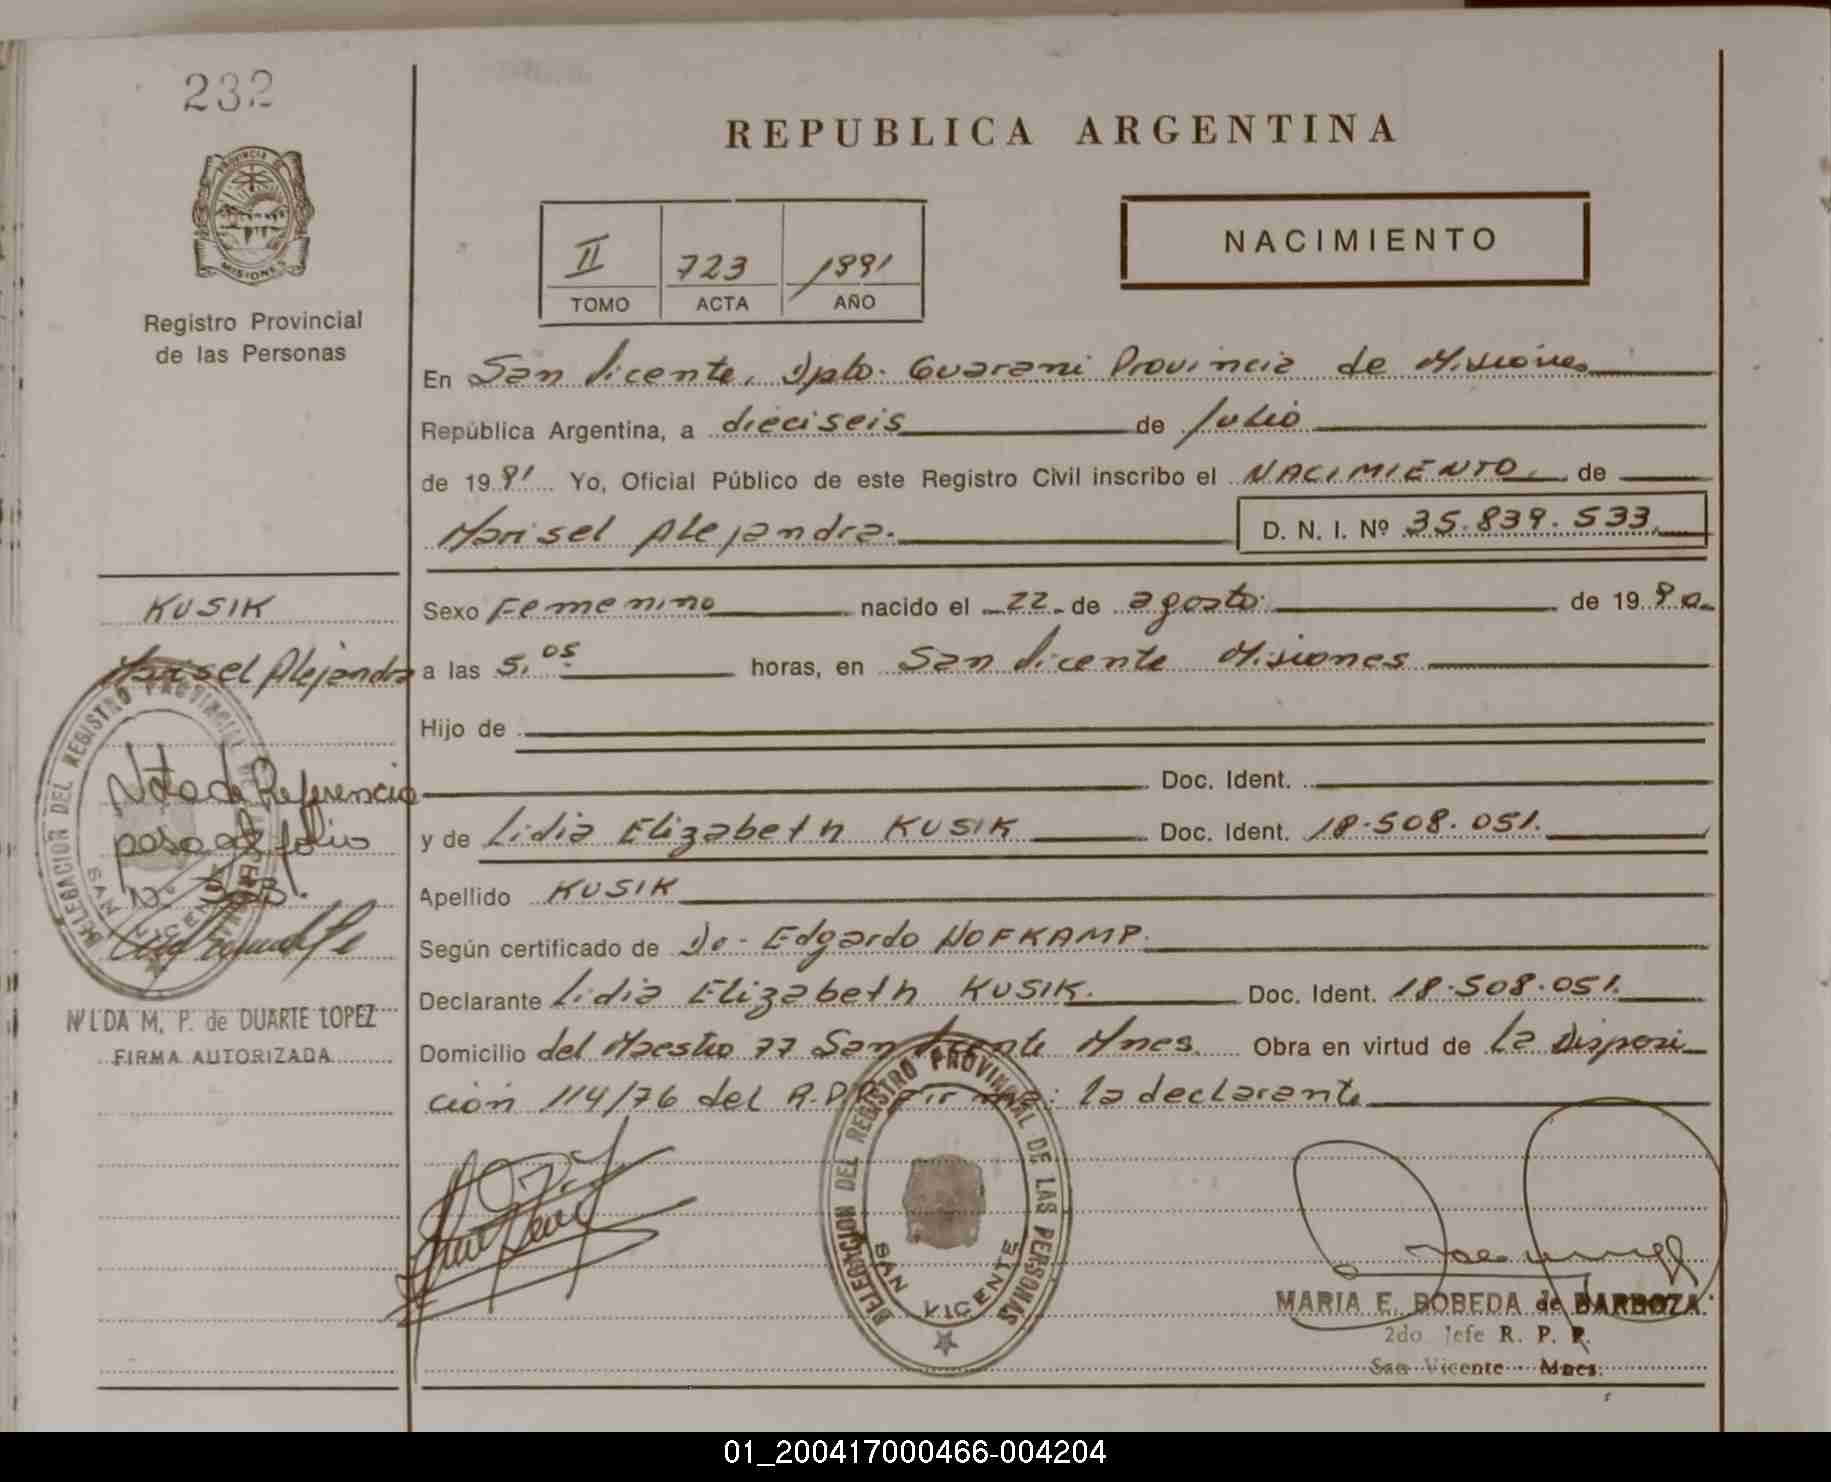 232
PROVINCIA DE
MISIONES
Registro Provincial
de las Personas
REPUBLICA ARGENTINA
II 723 1991
TOMO ACTA AÑO
NACIMIENTO
En San Vicente, Dpto. Guarani Provincia de Misiones
República Argentina, a dieciseis de Julio
de 1991 Yo, Oficial Público de este Registro Civil inscribo el NACIMIENTO de
Marisel Alejandra. D. N. I. Nº 35.839.533
KUSIK
Marisel Alejandra
Sexo Femenino nacido el 22 de agosto de 1990
a las 5,05 horas, en San Vicente Misiones
Hijo de
Doc. Ident.
y de Lidia Elizabeth KUSIK Doc. Ident. 18.508.051.
Apellido KUSIK
Según certificado de Dr. Edgardo HOFKAMP.
Declarante Lidia Elizabeth KUSIK. Doc. Ident. 18.508.051.
Domicilio del Maestro 77 San Vicente Mnes. Obra en virtud de la Disposi
ción 114/76 del R.P.P. Firma: la declarante
Nota de Referencia
pasa al folio
Nº
DELEGACION DEL REGISTRO PROVINCIAL DE LAS PERSONAS
SAN VICENTE
NILDA M. P. de DUARTE LOPEZ
FIRMA AUTORIZADA
DELEGACION DEL REGISTRO PROVINCIAL DE LAS PERSONAS
SAN VICENTE
MARIA E. BOBEDA de BARBOZA
2do Jefe R. P. P.
San Vicente - Mnes.
01_200417000466-004204